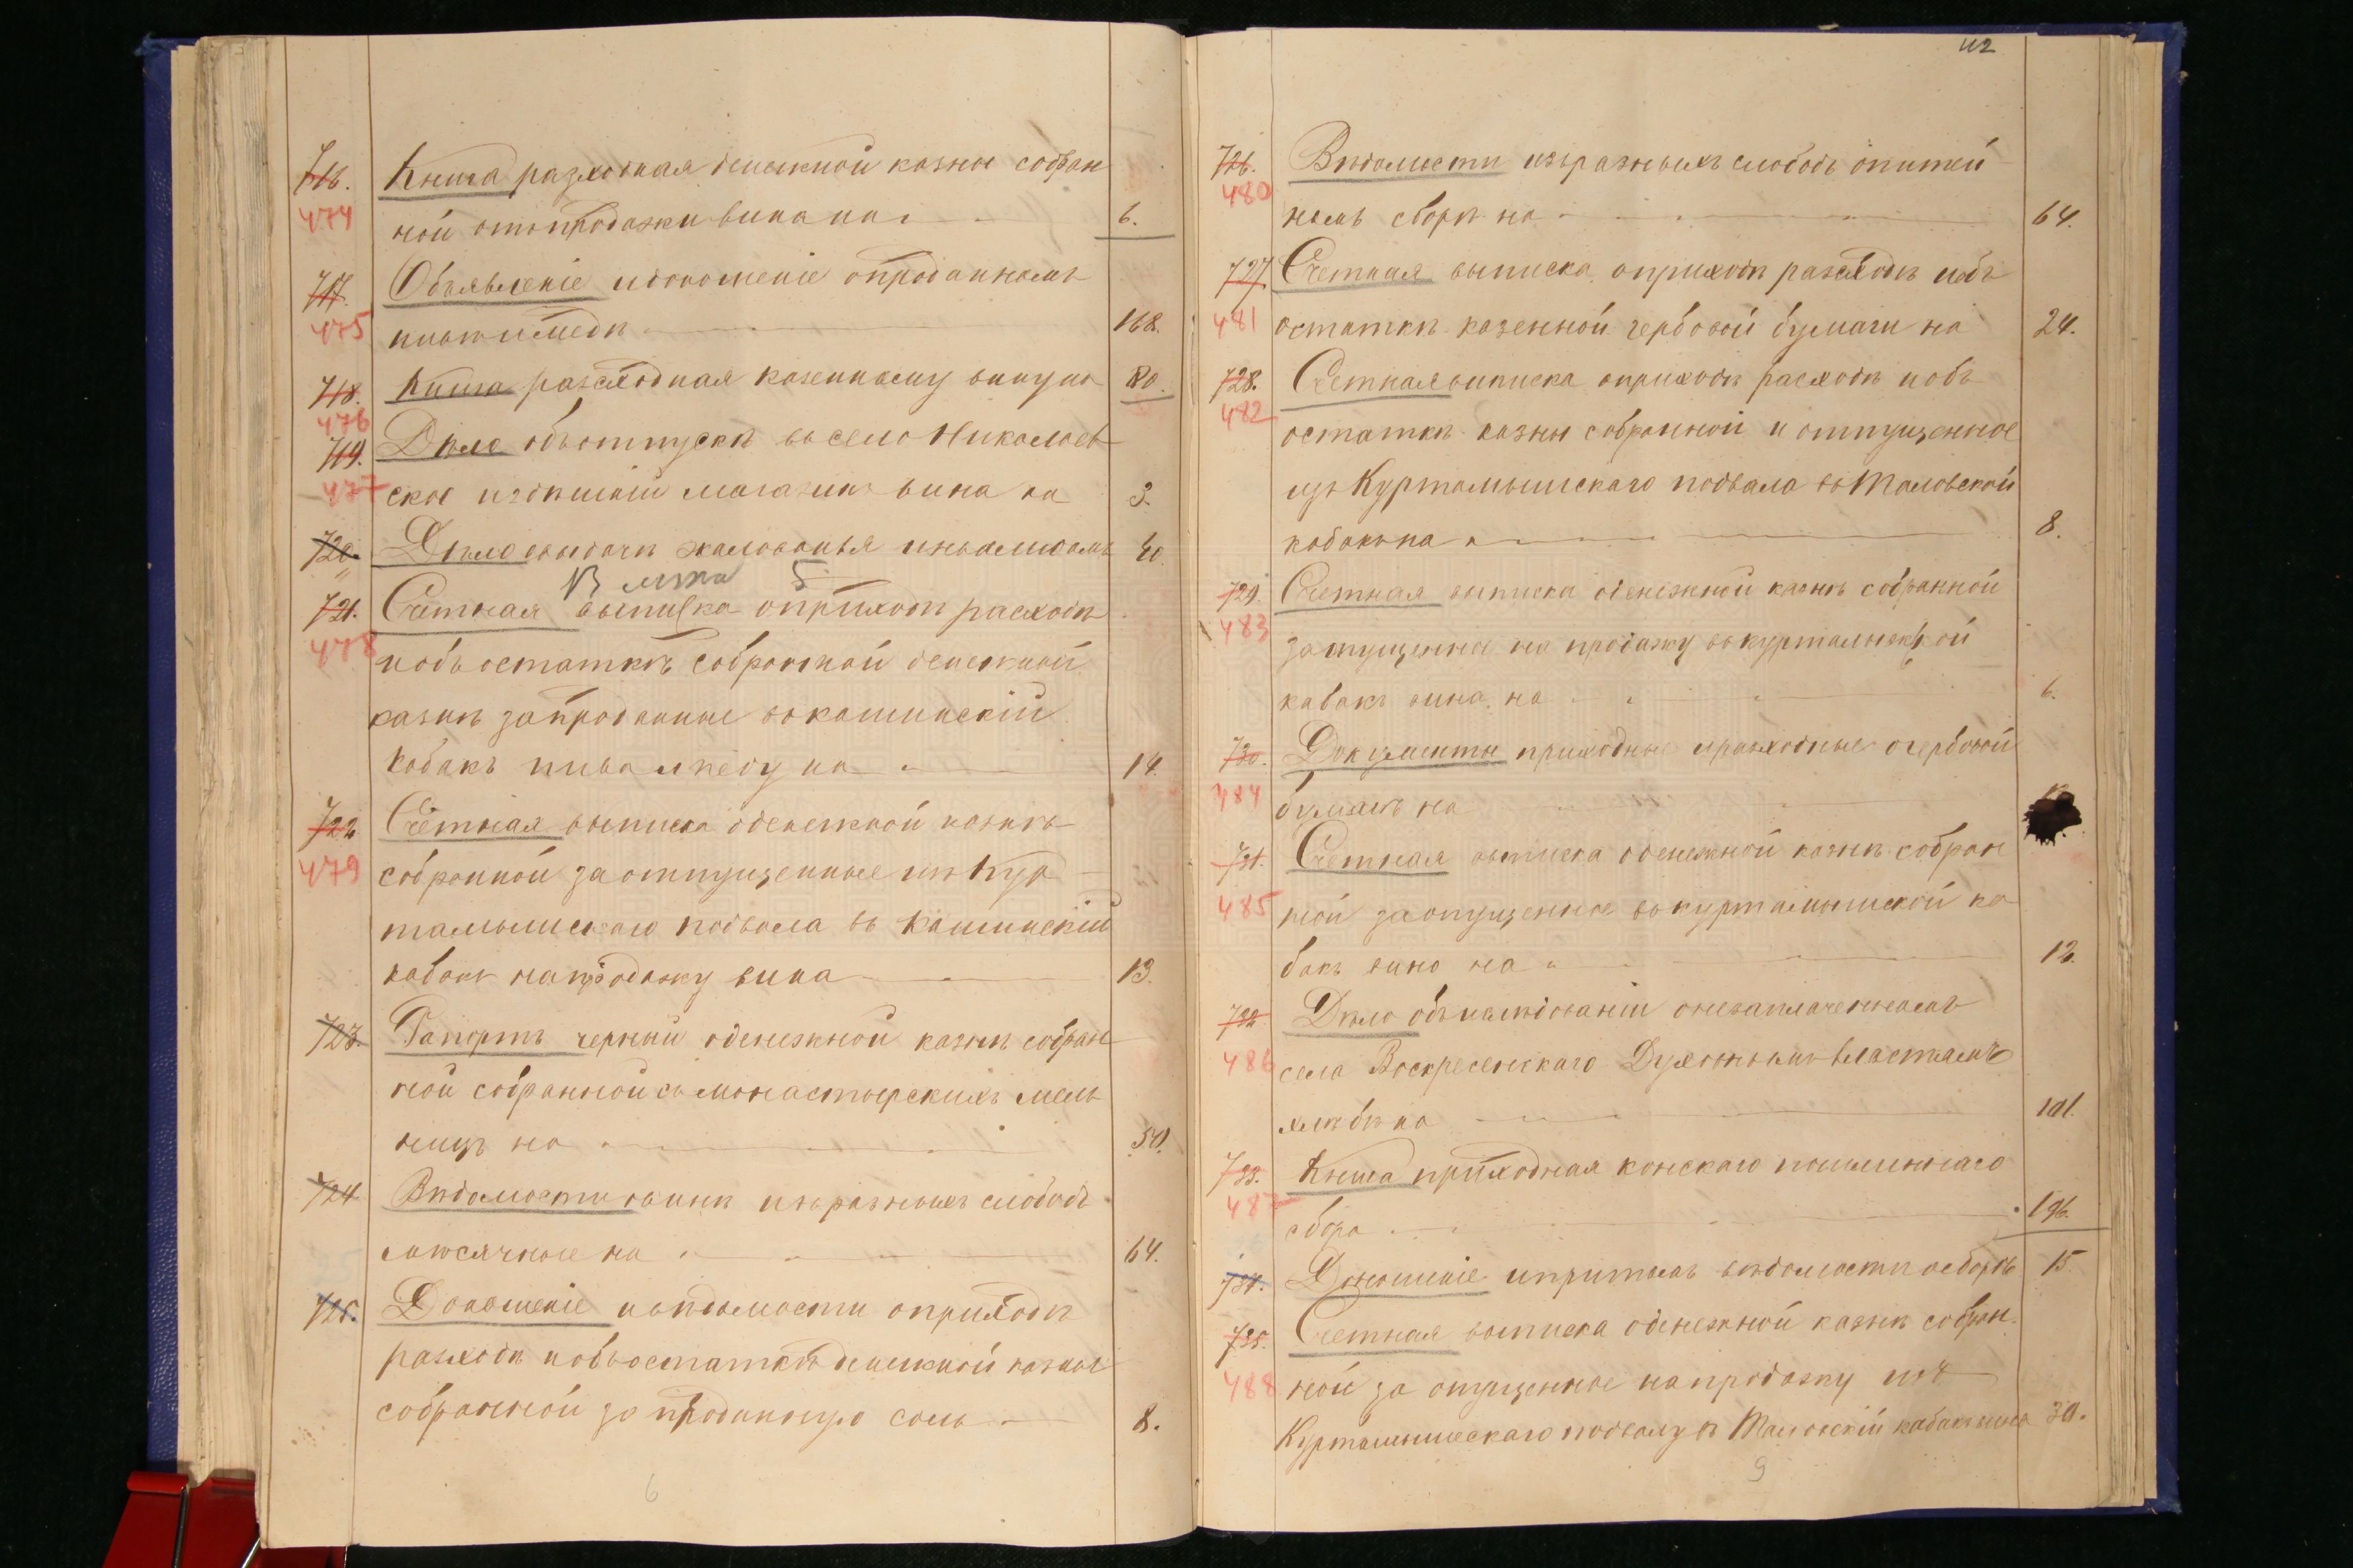 716. Книга разходная денежной казнѣ собран
474 ной отъ продажи вина на 6.
717. Объявленіе и доношеніе о проданномъ
475 пивѣ и медѣ 168.
718. Книга разсходная казенному вину на 80.
476
719. Дѣло объ отпускѣ въ село Николаев
477 ское изъ магазина вина на 3.
720. Дѣло о выдачѣ жалованья инвалидамъ 40
721. Счетная выписка о приходѣ расходѣ
478 и объ остаткѣ собранной денежной
казнѣ за проданные въ кашинскій
кабакъ пива и меду на 14.
722 Счетная выписка о денежной казнѣ
479 собранной за отпущенные изъ Кур
тамышскаго подвала въ Кашинскій
кабакъ на продажу вина 13.
723. Рапортъ черный о денежной казнѣ собран
ной собранной съ монастырскихъ мель
ницъ на 50.
724 Вѣдомости о винѣ изъ разныхъ слободъ
мѣсячные на 64.
725. Доношеніе и вѣдомости о приходѣ
разходѣ и объ остаткѣ денежной казны
собранной за проданную соль 8.
6
112
726. Вѣдомости изъ разныхъ слободъ о питей
480 номъ сборѣ на 64.
727. Счетная выписка о приходѣ разсходѣ и объ
481 остаткѣ казенной гербовой бумаги на 24.
728. Счетная выписка о приходѣ расходѣ и объ
482 остаткѣ казны собранной и отпущенное
изъ Куртамышскаго подвала въ Таловской
кабакъ на 8.
729. Счетная выписка о денежной казнѣ собранной
483 за пущенное на продажу въ куртамышской
кабакъ вина на 6.
730. Документы приходные и разходные о гербовой
484 бумагѣ на
731. Счетная выписка о денежной казнѣ собран
485 ной за опущенное въ куртамышской ка
бакъ вино на 12.
732 Дѣло объ изслѣдованіи о незаплаченномъ
486 села Воскресенскаго Духовнымъ властямъ
хлѣбѣ на 101.
733. Книга приходная конскаго пошлиннаго
487 сбора 196.
734. Доношеніе и при томъ вѣдомости о сборѣ 15.
735. Счетная выписка о денежной казнѣ собран
488 ной за опущенное на продажу изъ
Куртамышскаго подвалу в Таловскій кабакъ вина 30.
9